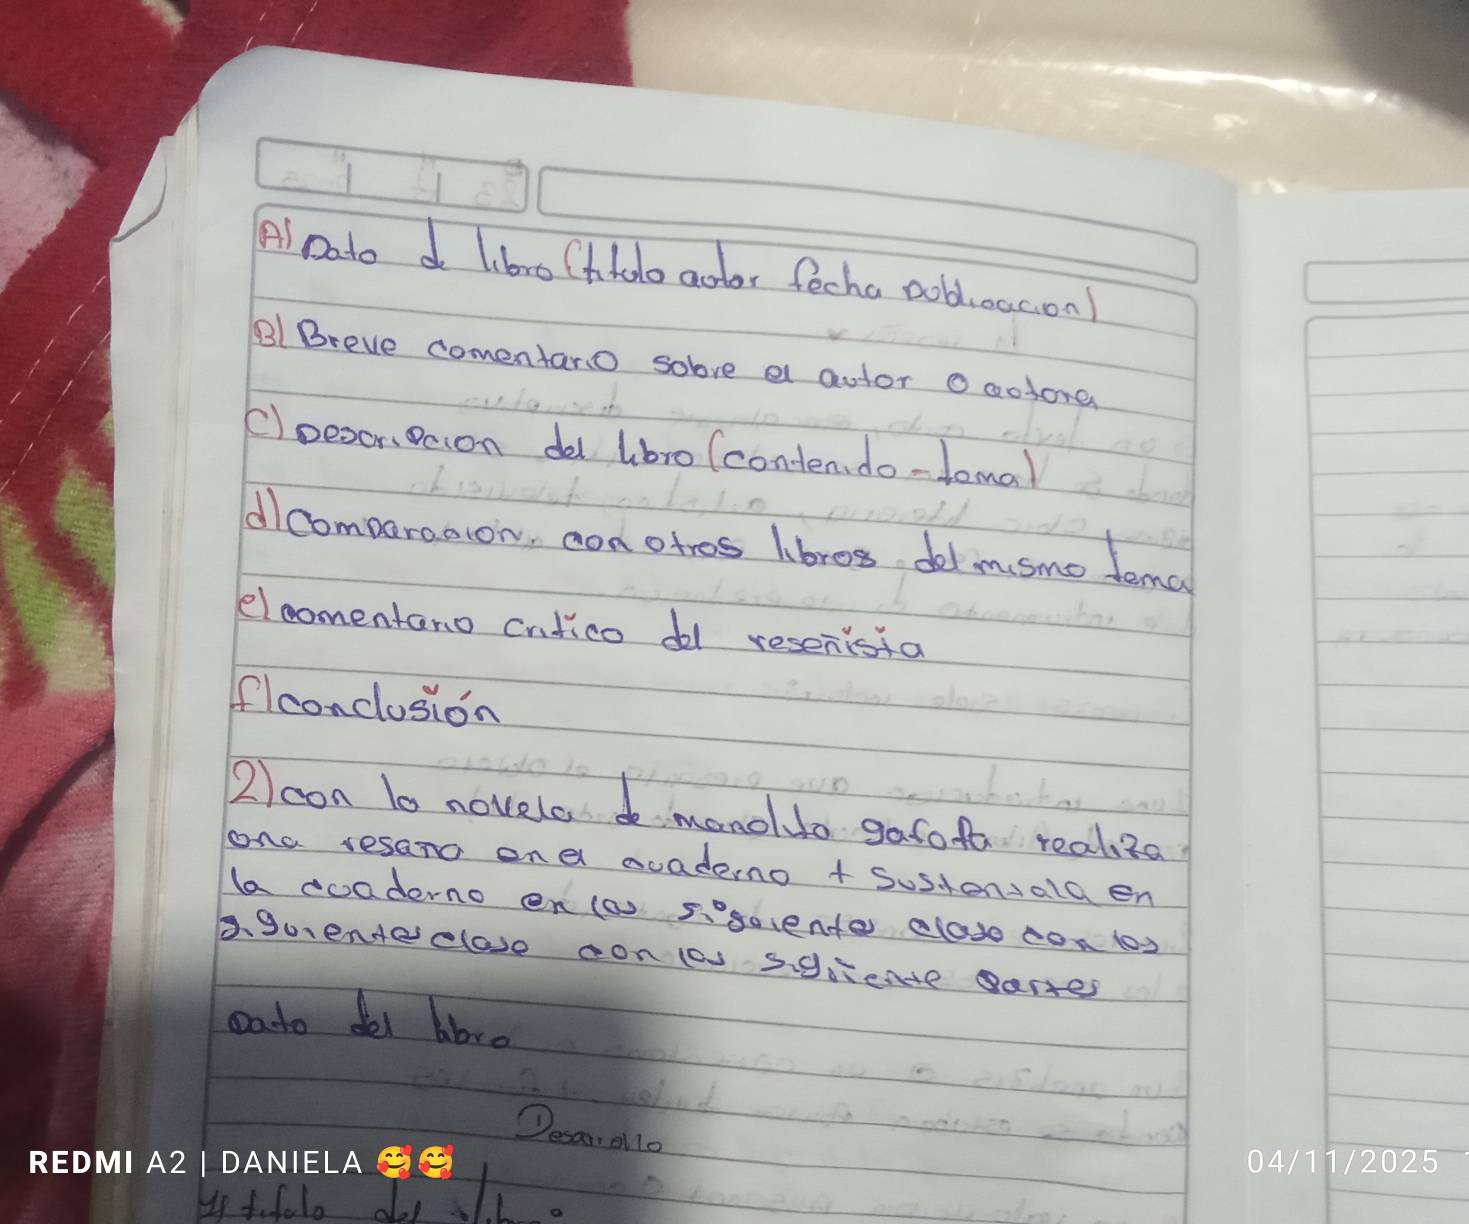 A) Dato de libro (titulo autor fecha publicacion)
B) Breve comentario sobre el autor o autora
C) Descripcion del libro (contenido - tema)
d) comparacion con otros libros del mismo tema
e) comentario critico del reseñista
f) conclusión
2) con la novela de manolito gafota realiza
una resana en el cuaderno + sustentala en
la cuaderno en las siguiente clase con los
siguiente clase con las siguiente partes
Dato del libro
Desarrollo
titulo del libro
REDMI A2 | DANIELA 🥰🥰
04/11/2025